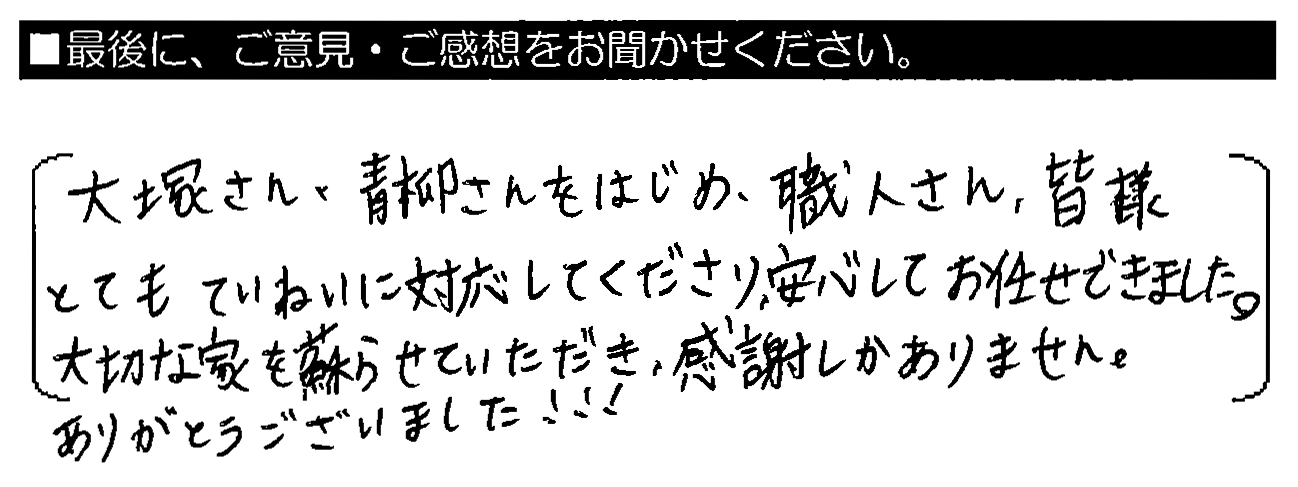 ■最後に、ご意見・ご感想をお聞かせください。
大塚さん、青柳さんをはじめ、職人さん、皆様
とても ていねいに対応してくださり、安心してお任せできました。
大切な家を蘇らせていただき、感謝しかありません。
ありがとうございました!!!